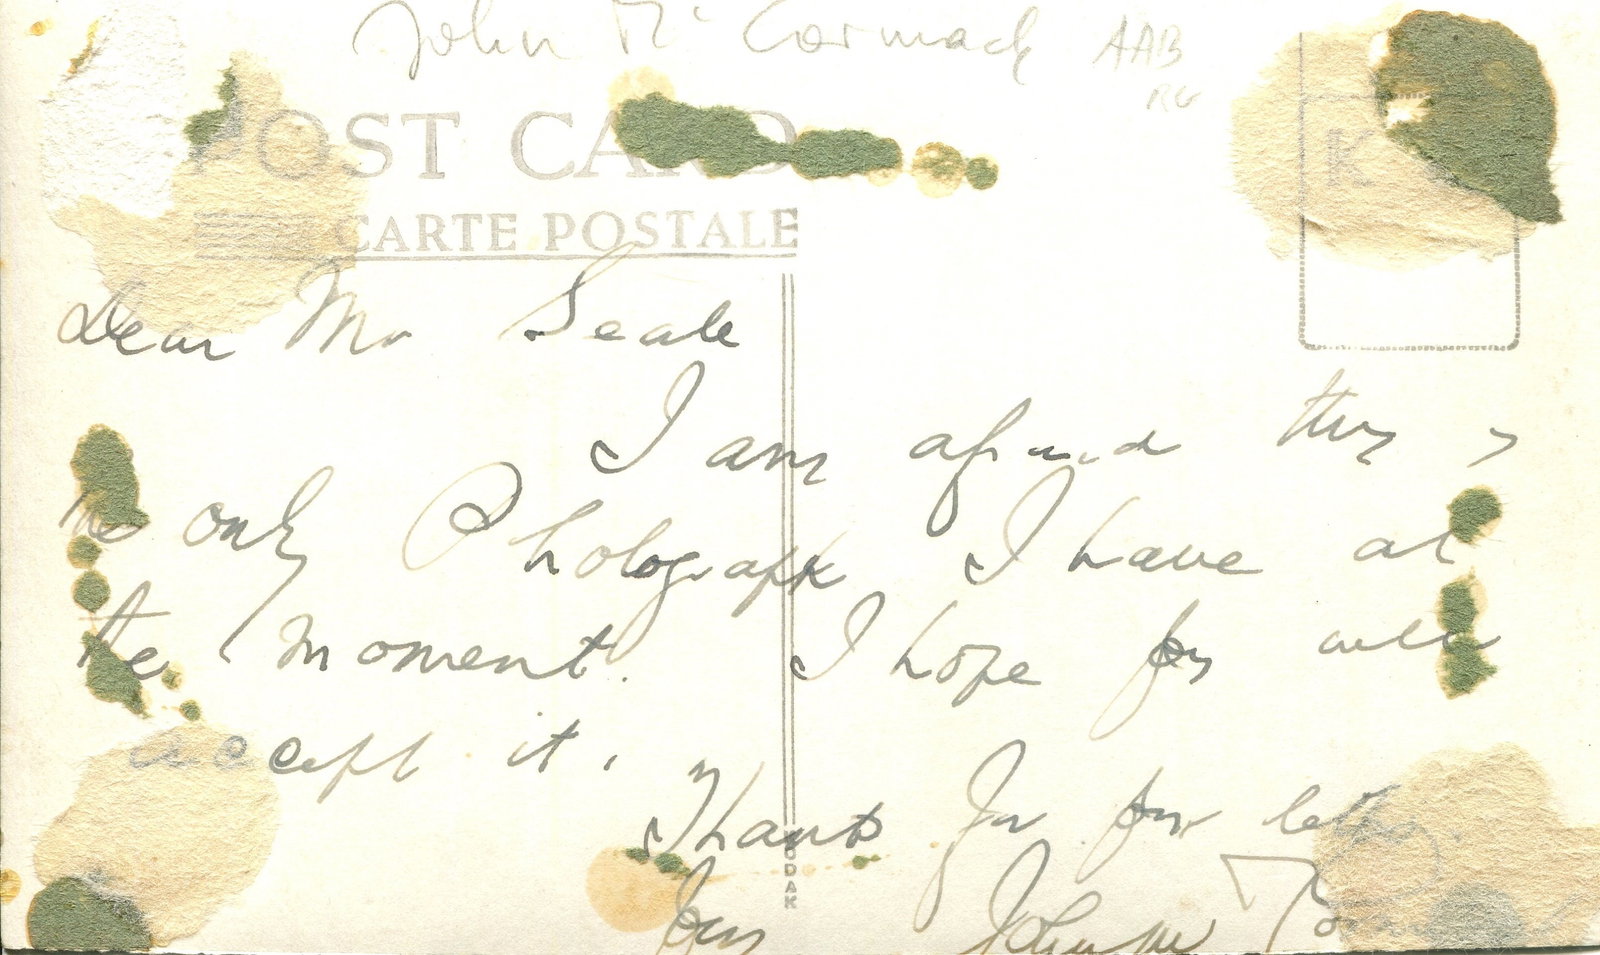 John McCormack AAB
RG
POST CARD
CARTE POSTALE
K
Dear Mr Seale
I am afraid this is
the only Photograph I have at
the moment. I hope you will
accept it.
Thanks for your letter
Yours John Mc
KODAK